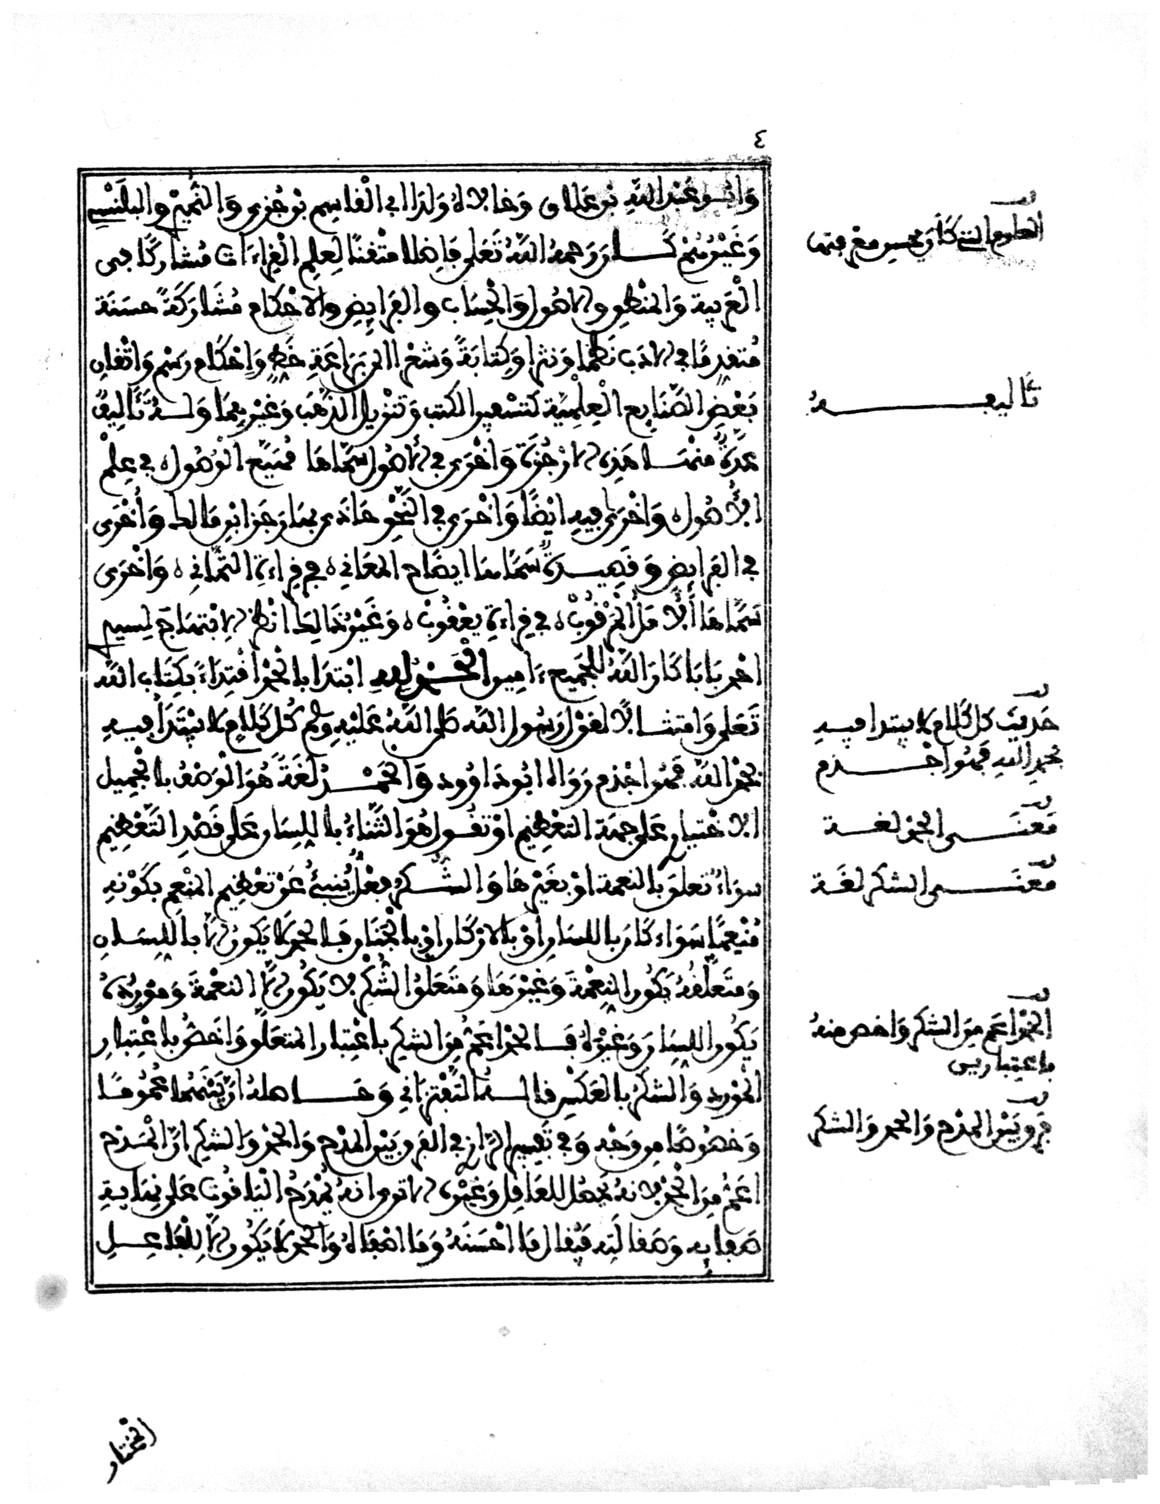 ٤
وابو عبد الله بن علاق وخالاه ولدا ابي القاسم بن جزي والشميز والبلنسي
وغيرهم كان رحمه الله تعلى فاضلا متفننا لعلم القراءات مشاركا في
العربية والمنطق والاصول والحساب والفرايض والاحكام مشاركة حسنة
متقدما في الادب نظما ونثرا وكتابة وشعرا الى براعة خط واحكام رسم واتقان
بعض الصنايع العلمية كتسفير الكتب وتنزيل الذهب وغيرهما وله تآليف
عدة منها هذه الارجزة واخرى في الاصول سماها مهيع الوصول في علم
الاصول واخرى فيه ايضا واخرى في النحو حاذى بها رجز ابن مالك واخرى
في الفرايض وقصيدة سماها ايضاح المعاني في قراءة الثماني واخرى
سماها الامل المرقوب في قراءة يعقوب وغير ذالك انظر الابتهاج لسيدي
احمد بابا كان الله للجميع ءامين الحمد لله ابتدا بالحمد اقتداء بكتاب الله
تعلى وامتثالا لقول رسول الله صلى الله عليه وسلم كل كلام لا يبتدأ فيه
بحمد الله فهو اجذم رواه ابو داوود والحمد لغة هو الوصف بالجميل
الاختياري على جهة التعظيم او تقول هو الثناء باللسان على قصد التعظيم
سواء تعلق بالنعمة او بغيرها والشكر فعل ينبئ عن تعظيم المنعم بكونه
منعما سواء كان باللسان او بالاركان او بالجنان فالحمد لا يكون الا باللسان
ومتعلقه يكون النعمة وغيرها ومتعلق الشكر لا يكون الا النعمة ومورده
يكون اللسان وغيره فالحمد اعم من الشكر باعتبار المتعلق واخص باعتبار
المورد والشكر بالعكس قاله التفتزاني وحاصله ان بينهما عموما
وخصوصا من وجه وفي تفسير الرازي الفرق بين المدح والحمد والشكر ان المدح
اعم من الحمد لانه يحصل للعاقل وغيره الا ترى انه يمدح الياقوت على نهاية
صفايه وصقالته فيقال ما احسنه وما اصفاه والحمد لا يكون الا للفاعل
المختار
العلوم التي كان يحسن معرفتها
تآليفه
حديث كل كلام لا يبتدا فيه
بحمد الله فهو اجذم
معنى الحمد لغة
معنى الشكر لغة
الحمد اعم من الشكر واخص منه
باعتبارين
فرق بين المدح والحمد والشكر